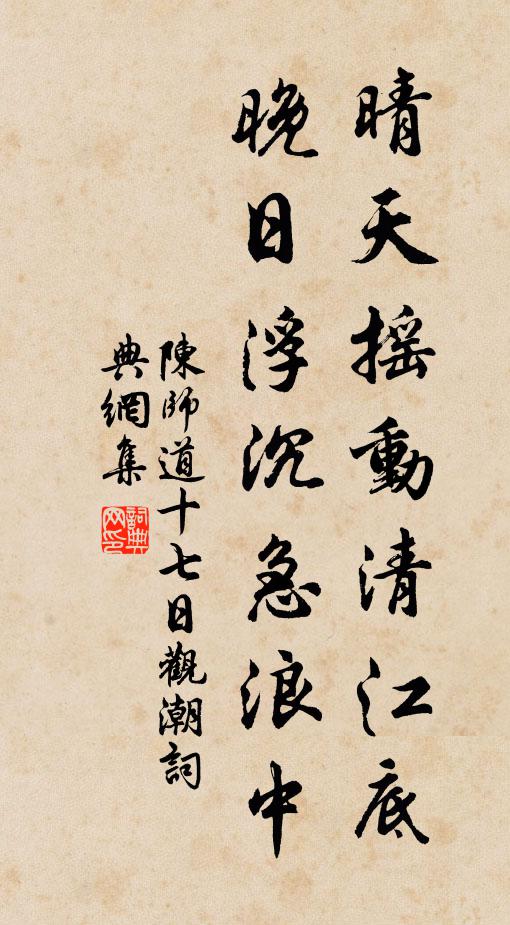 晴天摇動清江底
晚日浮沉急浪中
陳師道十七日觀潮詞
典網集
詞典
网印